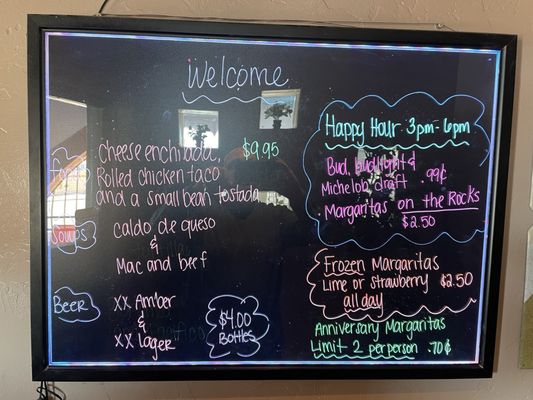 Welcome
Food
Cheese enchilada, $9.95
Rolled chicken taco
and a small bean tostada
Soups
caldo de queso
&
Mac and beef
Beer
XX Amber
&
XX lager
$4.00
Bottles
Happy Hour 3pm-6pm
Bud, budlight &
Michelob draft .99¢
Margaritas on the Rocks
$2.50
Frozen Margaritas
Lime or Strawberry $2.50
all day
Anniversary Margaritas
Limit 2 per person .70¢